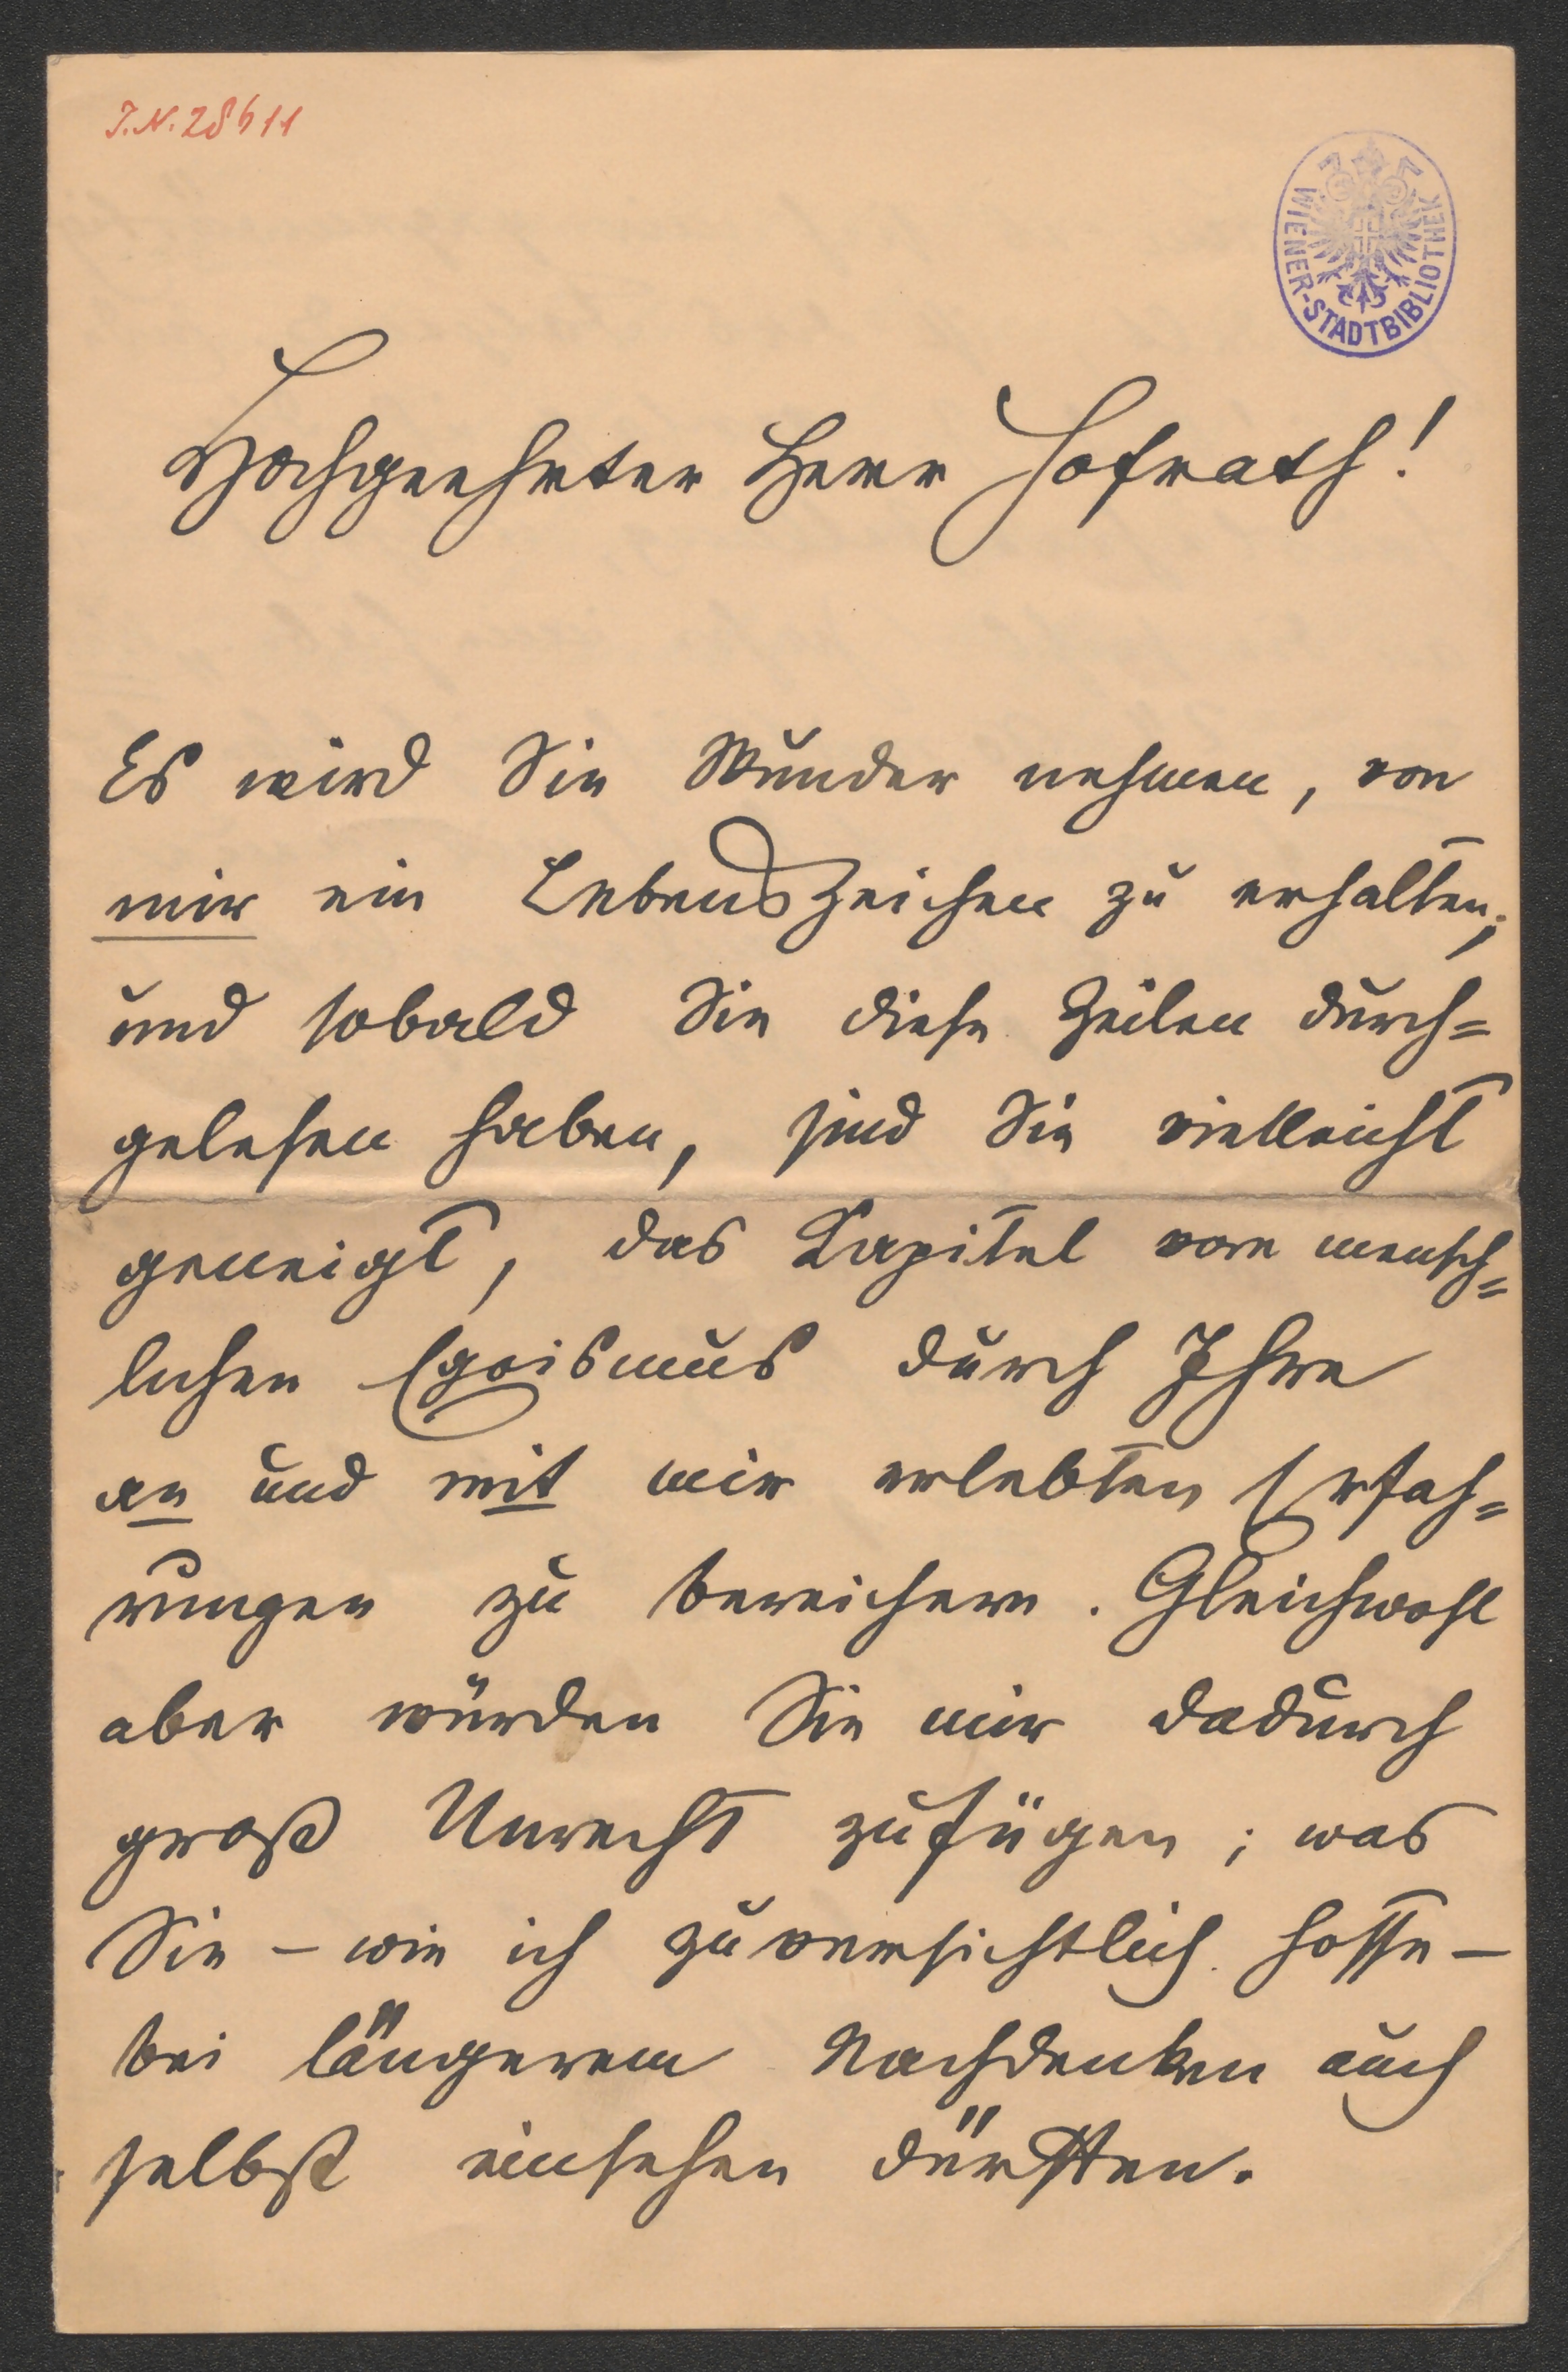 J.N. 28611
WIENER-STADTBIBLIOTHEK
Hochgeehrter Herr Hofrath!
Es wird Sie Wunder nehmen, von
mir ein Lebenszeichen zu erhalten;
und sobald Sie diese Zeilen durch=
gelesen haben, sind Sie vielleicht
geneigt, das Kapitel vom mensch=
lichen Egoismus durch Ihre
an und mit mir erlebten Erfah=
rungen zu bereichern. Gleichwohl
aber würden Sie mir dadurch
groß Unrecht zufügen; was
Sie – wie ich zuversichtlich hoffe –
bei längerem Nachdenken auch
selbst einsehen dürften.